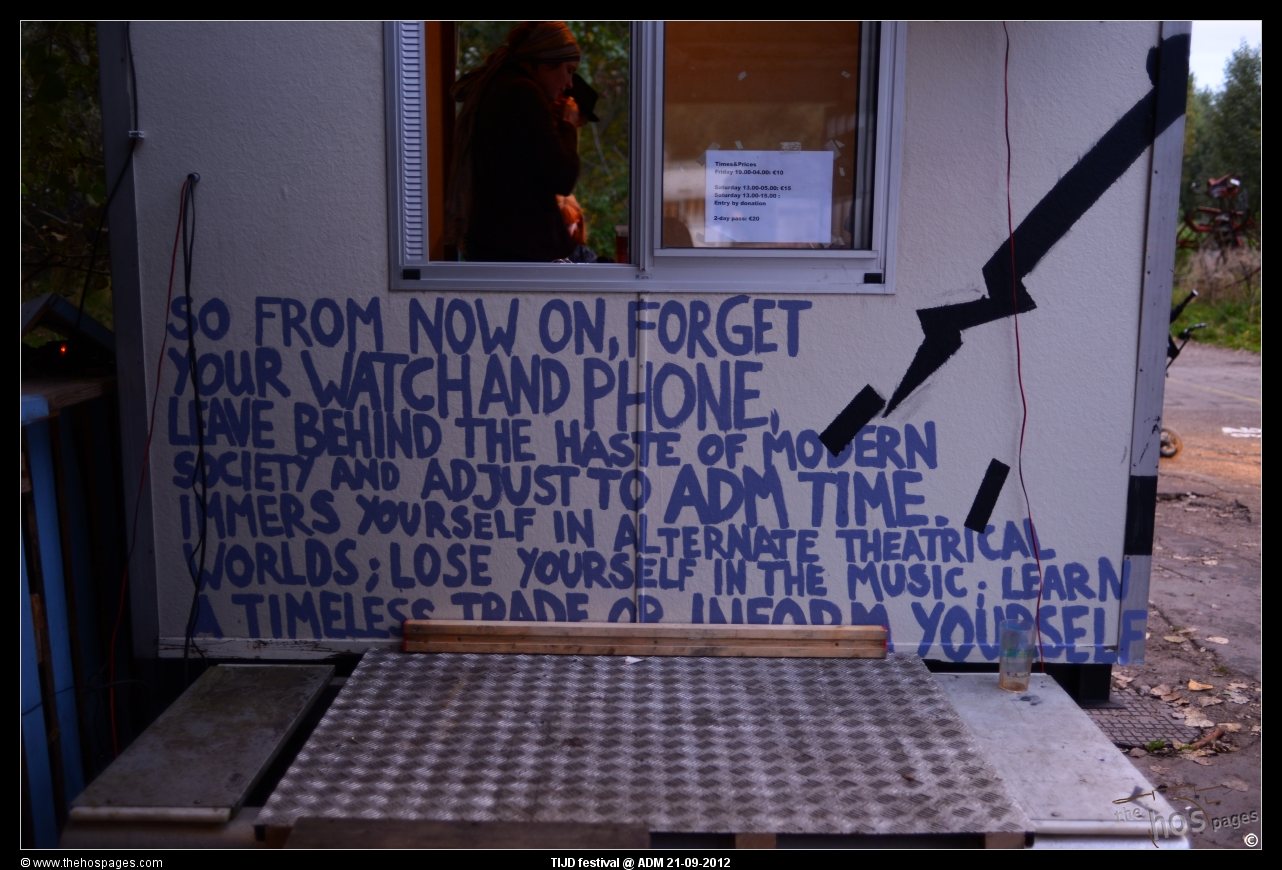 Times&Prices
Friday 19.00-04.00: €10
Saturday 13.00-05.00: €15
Saturday 13.00-15.00 :
Entry by donation
2-day pass: €20
SO FROM NOW ON, FORGET
YOUR WATCH AND PHONE,
LEAVE BEHIND THE HASTE OF MODERN
SOCIETY AND ADJUST TO ADM TIME.
IMMERS YOURSELF IN ALTERNATE THEATRICAL
WORLDS; LOSE YOURSELF IN THE MUSIC; LEARN
A TIMELESS TRADE OR INFORM YOURSELF
the hos pages
©
© www.thehospages.com
TIJD festival @ ADM 21-09-2012